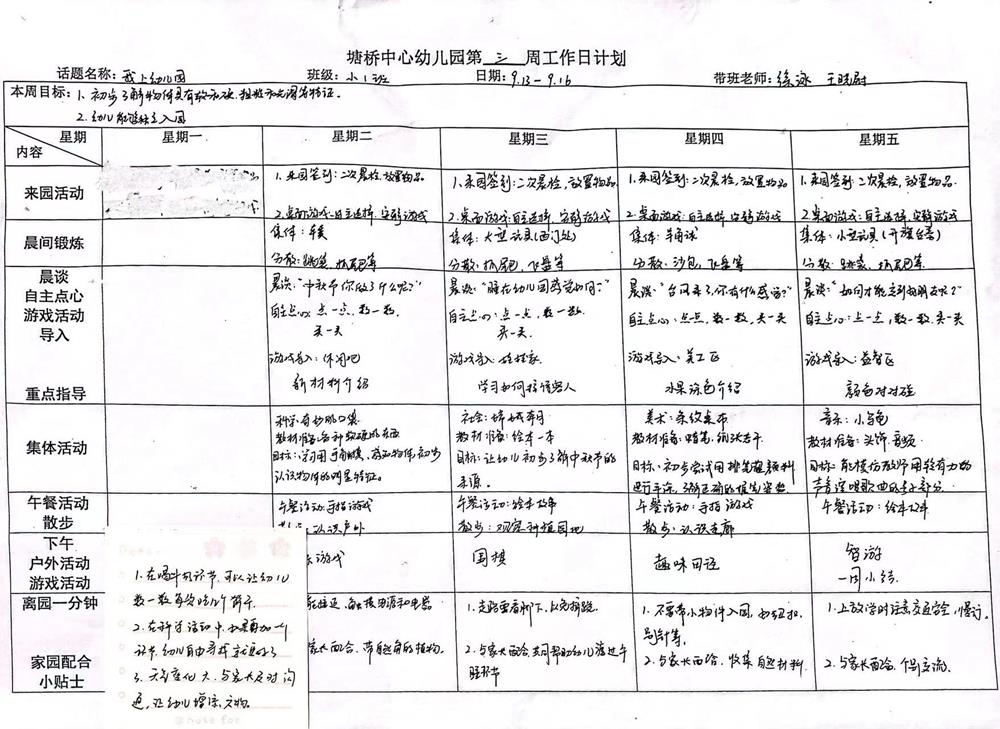 塘桥中心幼儿园第 三 周工作日计划
话题名称：我上幼儿园 班级：小1班 日期：9.13-9.16 带班老师：徐泳 王晓尉
本周目标：1、初步了解物件具有软和硬、粗糙和光滑等特征。
2、幼儿能继续主入园
星期 内容 星期一 星期二 星期三 星期四 星期五
来园活动
1、来园签到：二次晨检，放置物品。
2、桌面游戏：自主选择，安静游戏
1、来园签到：二次晨检，放置物品
2、桌面游戏：自主选择，安静游戏
1、来园签到：二次晨检，放置物品
2、桌面游戏：自主选择，安静游戏
1、来园签到：二次晨检，放置物品
2、桌面游戏：自主选择，安静游戏
晨间锻炼
集体：
分散：跳袋、抓尾巴等
集体：大型玩具（西门处）
分散：抓尾巴、飞盘等
集体：羊角球
分散：沙包、飞盘等
集体：小型玩具（升旗台旁）
分散：跳袋、抓尾巴等
晨谈
自主点心
游戏活动
导入
重点指导
晨谈：“中秋节你做了什么呢？”
自主点心：点一点，数一数，
夹一夹
游戏导入：休闲吧
新材料介绍
晨谈：“睡在幼儿园感觉如何？”
自主点心：点一点，数一数，
夹一夹
游戏导入：娃娃家
学习如何招待客人
晨谈：“台风来了，你有什么感受？”
自主点心：点一点，数一数，夹一夹
游戏导入：美工区
水果涂色介绍
晨谈：“如何才能交到好朋友呢？”
自主点心：点一点，数一数，夹一夹
游戏导入：益智区
颜色对对碰
集体活动
科学：奇妙的口袋
教材准备：各种软硬的东西
目标：学习用手触摸、感知物体，初步
认识物体的明显特征。
社会：嫦娥奔月
教材准备：绘本一本
目标：让幼儿初步了解中秋节的
来源。
美术：条纹桌布
教材准备：蜡笔、纸张若干
目标：初步尝试用排笔蘸颜料
进行平涂，了解正确的握笔姿势
音乐：小乌龟
教材准备：头饰、音频
目标：能模仿教师用较有力的
声音演唱歌曲的部分
午餐活动
散步
午餐活动：手指游戏
认识户外
午餐活动：绘本故事
散步：观察种植园地
午餐活动：手指游戏
散步：认识走廊
午餐活动：绘本故事
下午
户外活动
游戏活动
游戏
围棋
趣味田径
智游
一周小结
离园一分钟
家园配合
小贴士
家长配合，带自然角的植物。
1、走路要看脚下，以免摔跤。
2、与家长配合，共同帮助幼儿渡过午
睡环节
1、不要带小物件入园，如纽扣、
别针等。
2、与家长配合，收集自然材料
1、上放学时注意交通安全，慢行。
2、与家长配合，个别交流。
1、在喝牛奶环节，可以让幼儿
数一数每次吃几个饼干。
2、在科学活动中，如果再加一个
环节，幼儿自由寻找就更好了
3、天气变化大，与家长及时沟
通，让幼儿增添衣物。